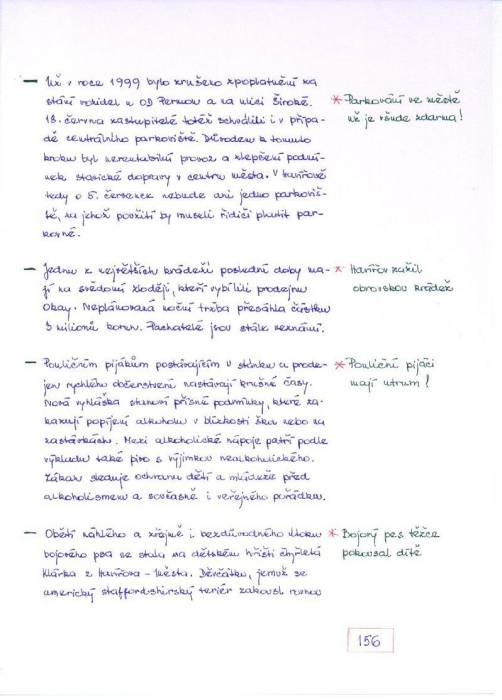 – Již v roce 1999 bylo zrušeno zpoplatnění za
stání vozidel u OD Permon a na ulici Široké.
18. června zastupitelé totéž schválili i v přípa-
dě centrálního parkoviště. Důvodem k tomuto
kroku byl nerentabilní provoz a zlepšení podmí-
nek statické dopravy v centru města. V Havířově
tedy o 5. červenec nebude ani jedno parkoviš-
tě, za jehož použití by museli řidiči platit par-
kovné.
* Parkování ve městě
už je všude zdarma!
– Jednu z největších krádeží poslední doby ma-
jí na svědomí zloději, kteří vybílili prodejnu
Okay. Neplánovaná noční tržba přesáhla částku
3 milionů korun. Pachatelé jsou stále neznámí.
* Havířov zažil
obrovskou krádež
– Pouličním pijákům postávajícím u stánku a prode-
jen rychlého občerstvení nastávají krušné časy.
Nová vyhláška stanoví přísné podmínky, které za-
kazují popíjení alkoholu v blízkosti škol nebo na
zastávkách. Mezi alkoholické nápoje patří podle
výkladu také pivo s výjimkou nealkoholického.
Zákon sleduje ochranu dětí a mládeže před
alkoholismem a současně i veřejného pořádku.
* Pouliční pijáci
mají utrum!
– Obětí náhlého a zřejmě i bezdůvodného útoku
bojového psa se stala na dětském hřišti čtyřletá
Klárka z Havířova - Města. Děvčátku, jemuž se
americký staffordshirský teriér zakousl rovnou
* Bojový pes těžce
pokousal dítě
156